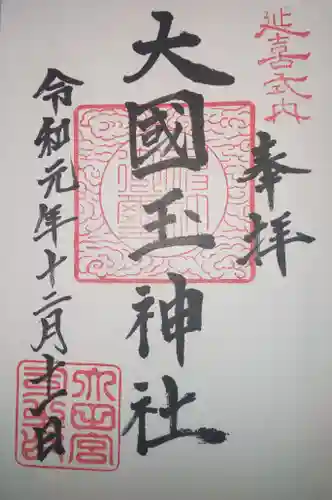 延喜式内
奉拝
大國玉神社
令和元年十二月十一日